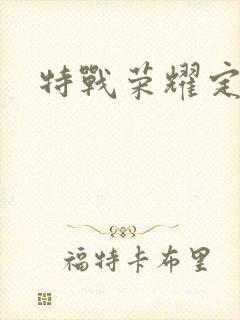 特戰荣耀定
福特卡布里